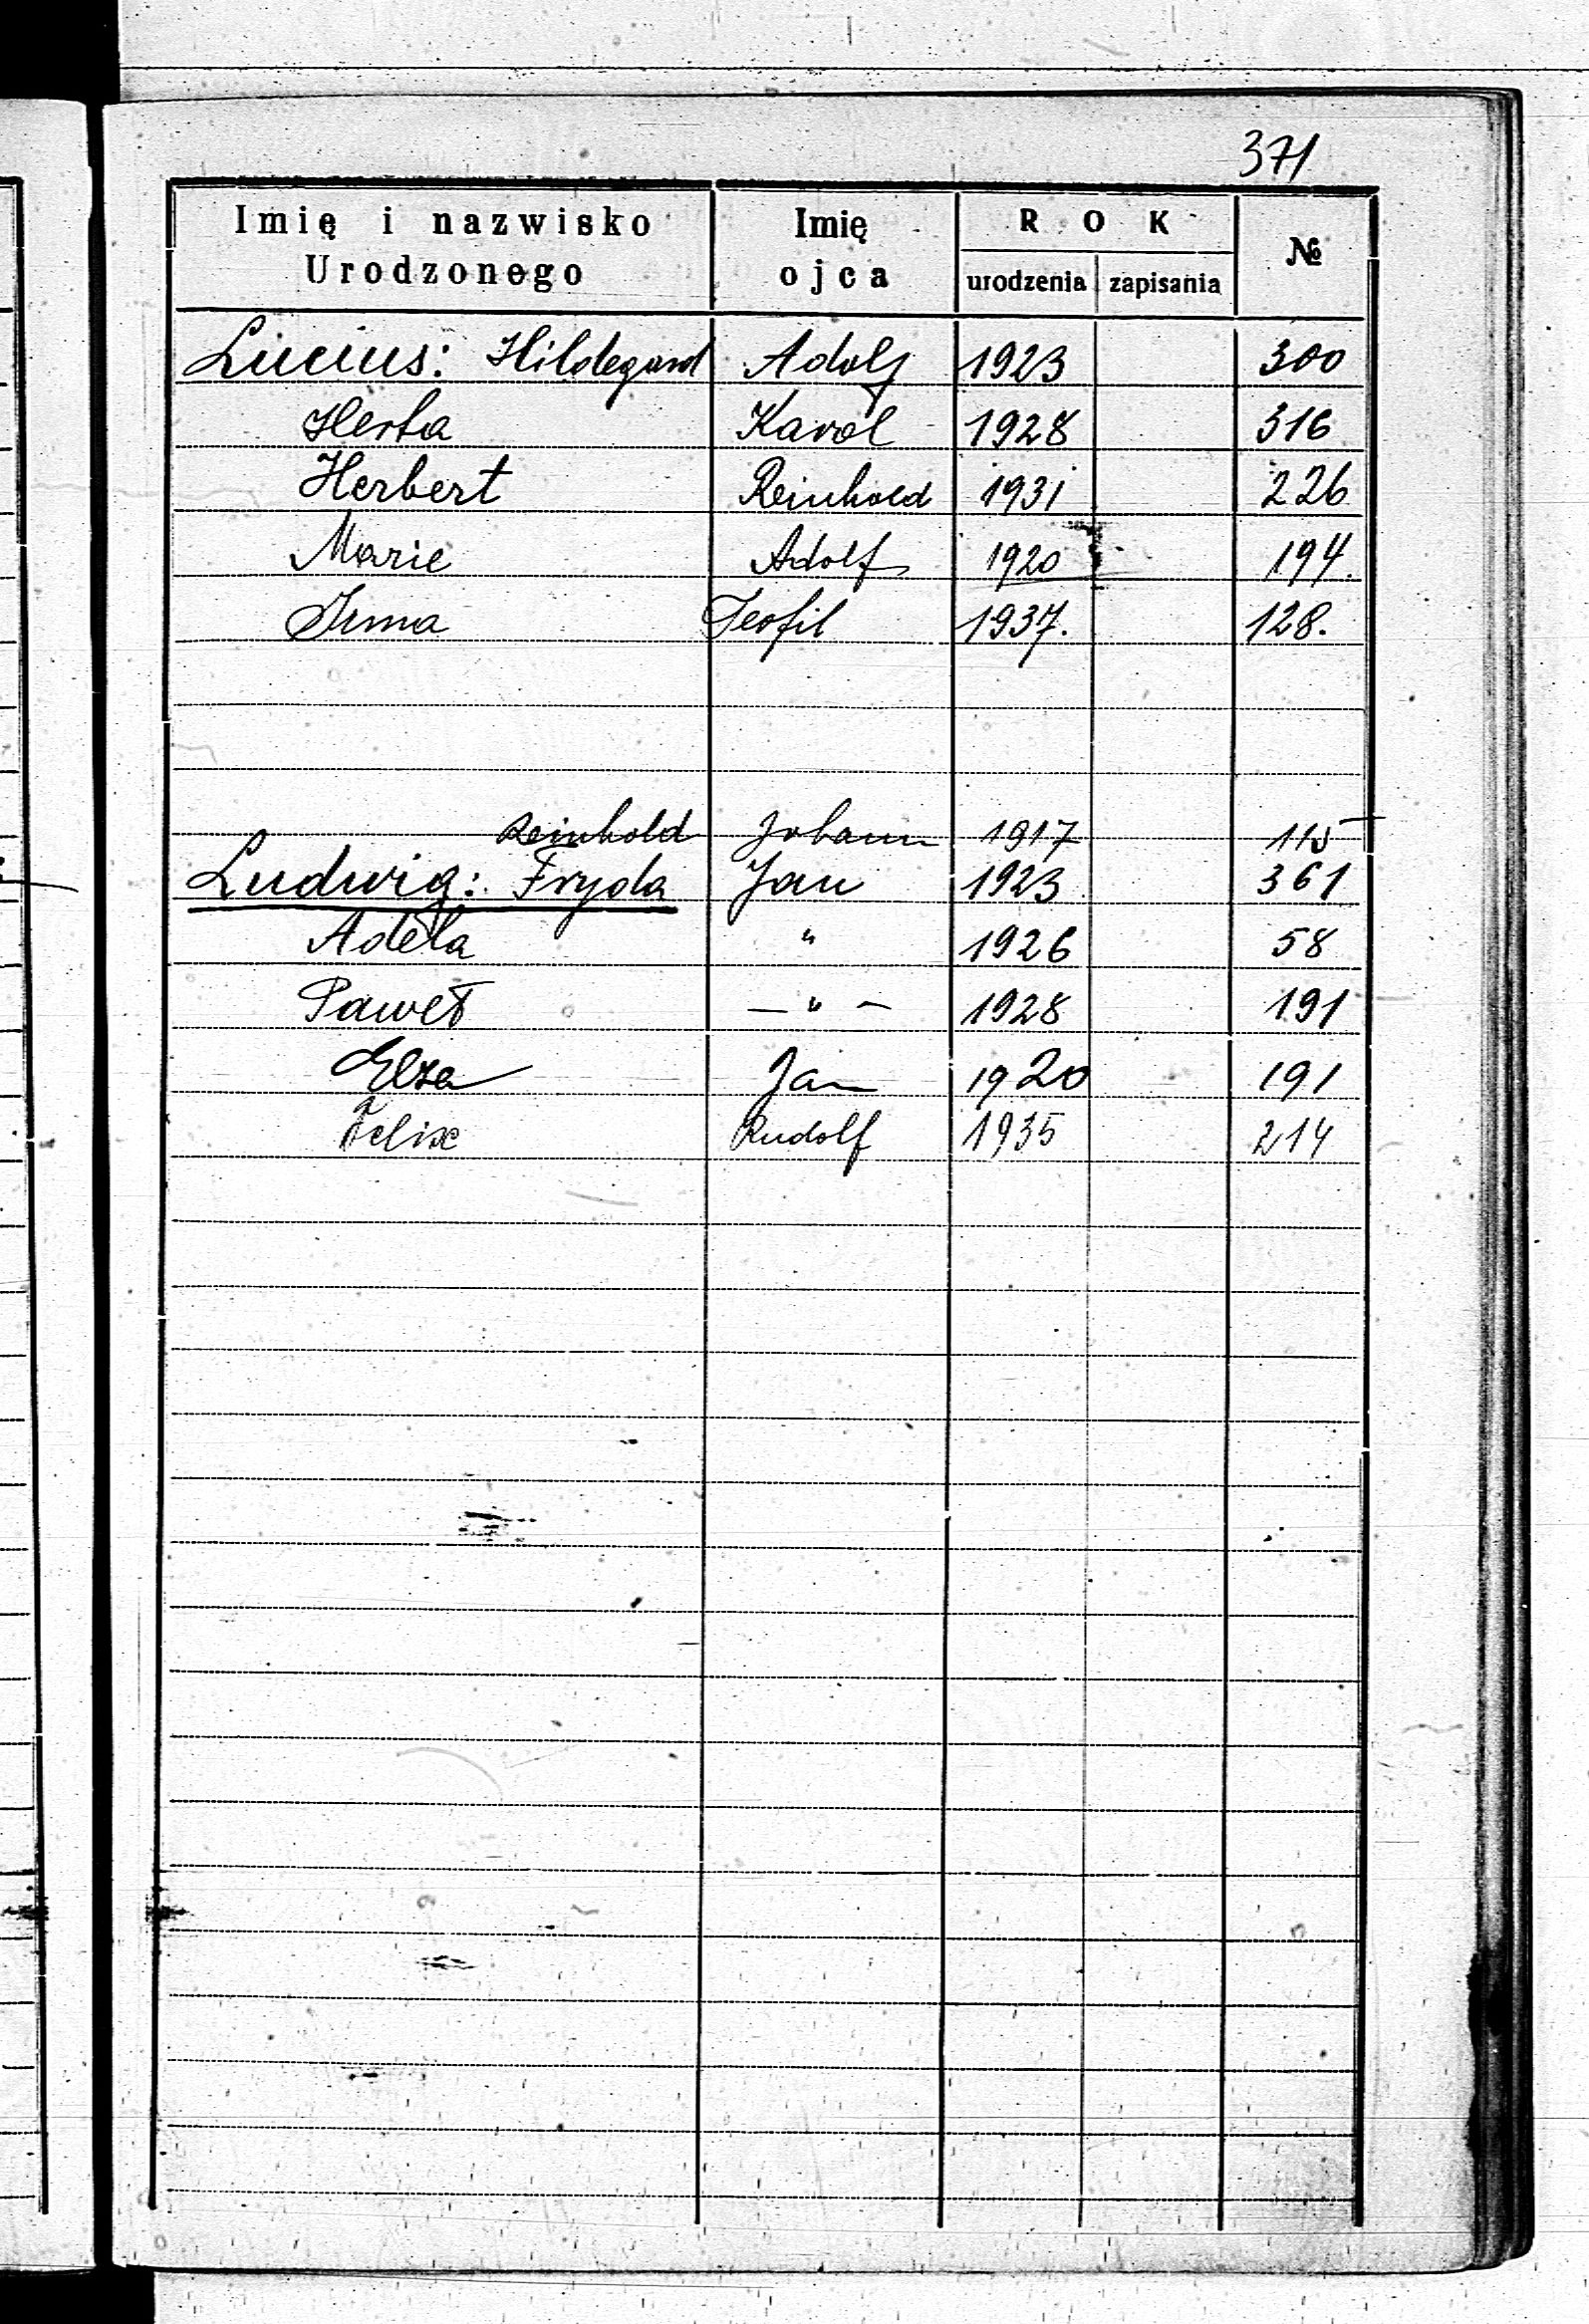 371
Imię i nazwisko Urodzonego Imię ojca ROK urodzenia zapisania №
Lucius: Hildegard Adolf 1923 300
Herta Karol 1928 316
Herbert Reinhold 1931 226
Marie Adolf 1920 194.
Irma Teofil 1937. 128.
Reinhold Johann 1917 115
Ludwig: Fryda Jan 1923 361
Adela " 1926 58
Paweł — " — 1928 191
Elza Jan 1920 191
Felix Rudolf 1935 214